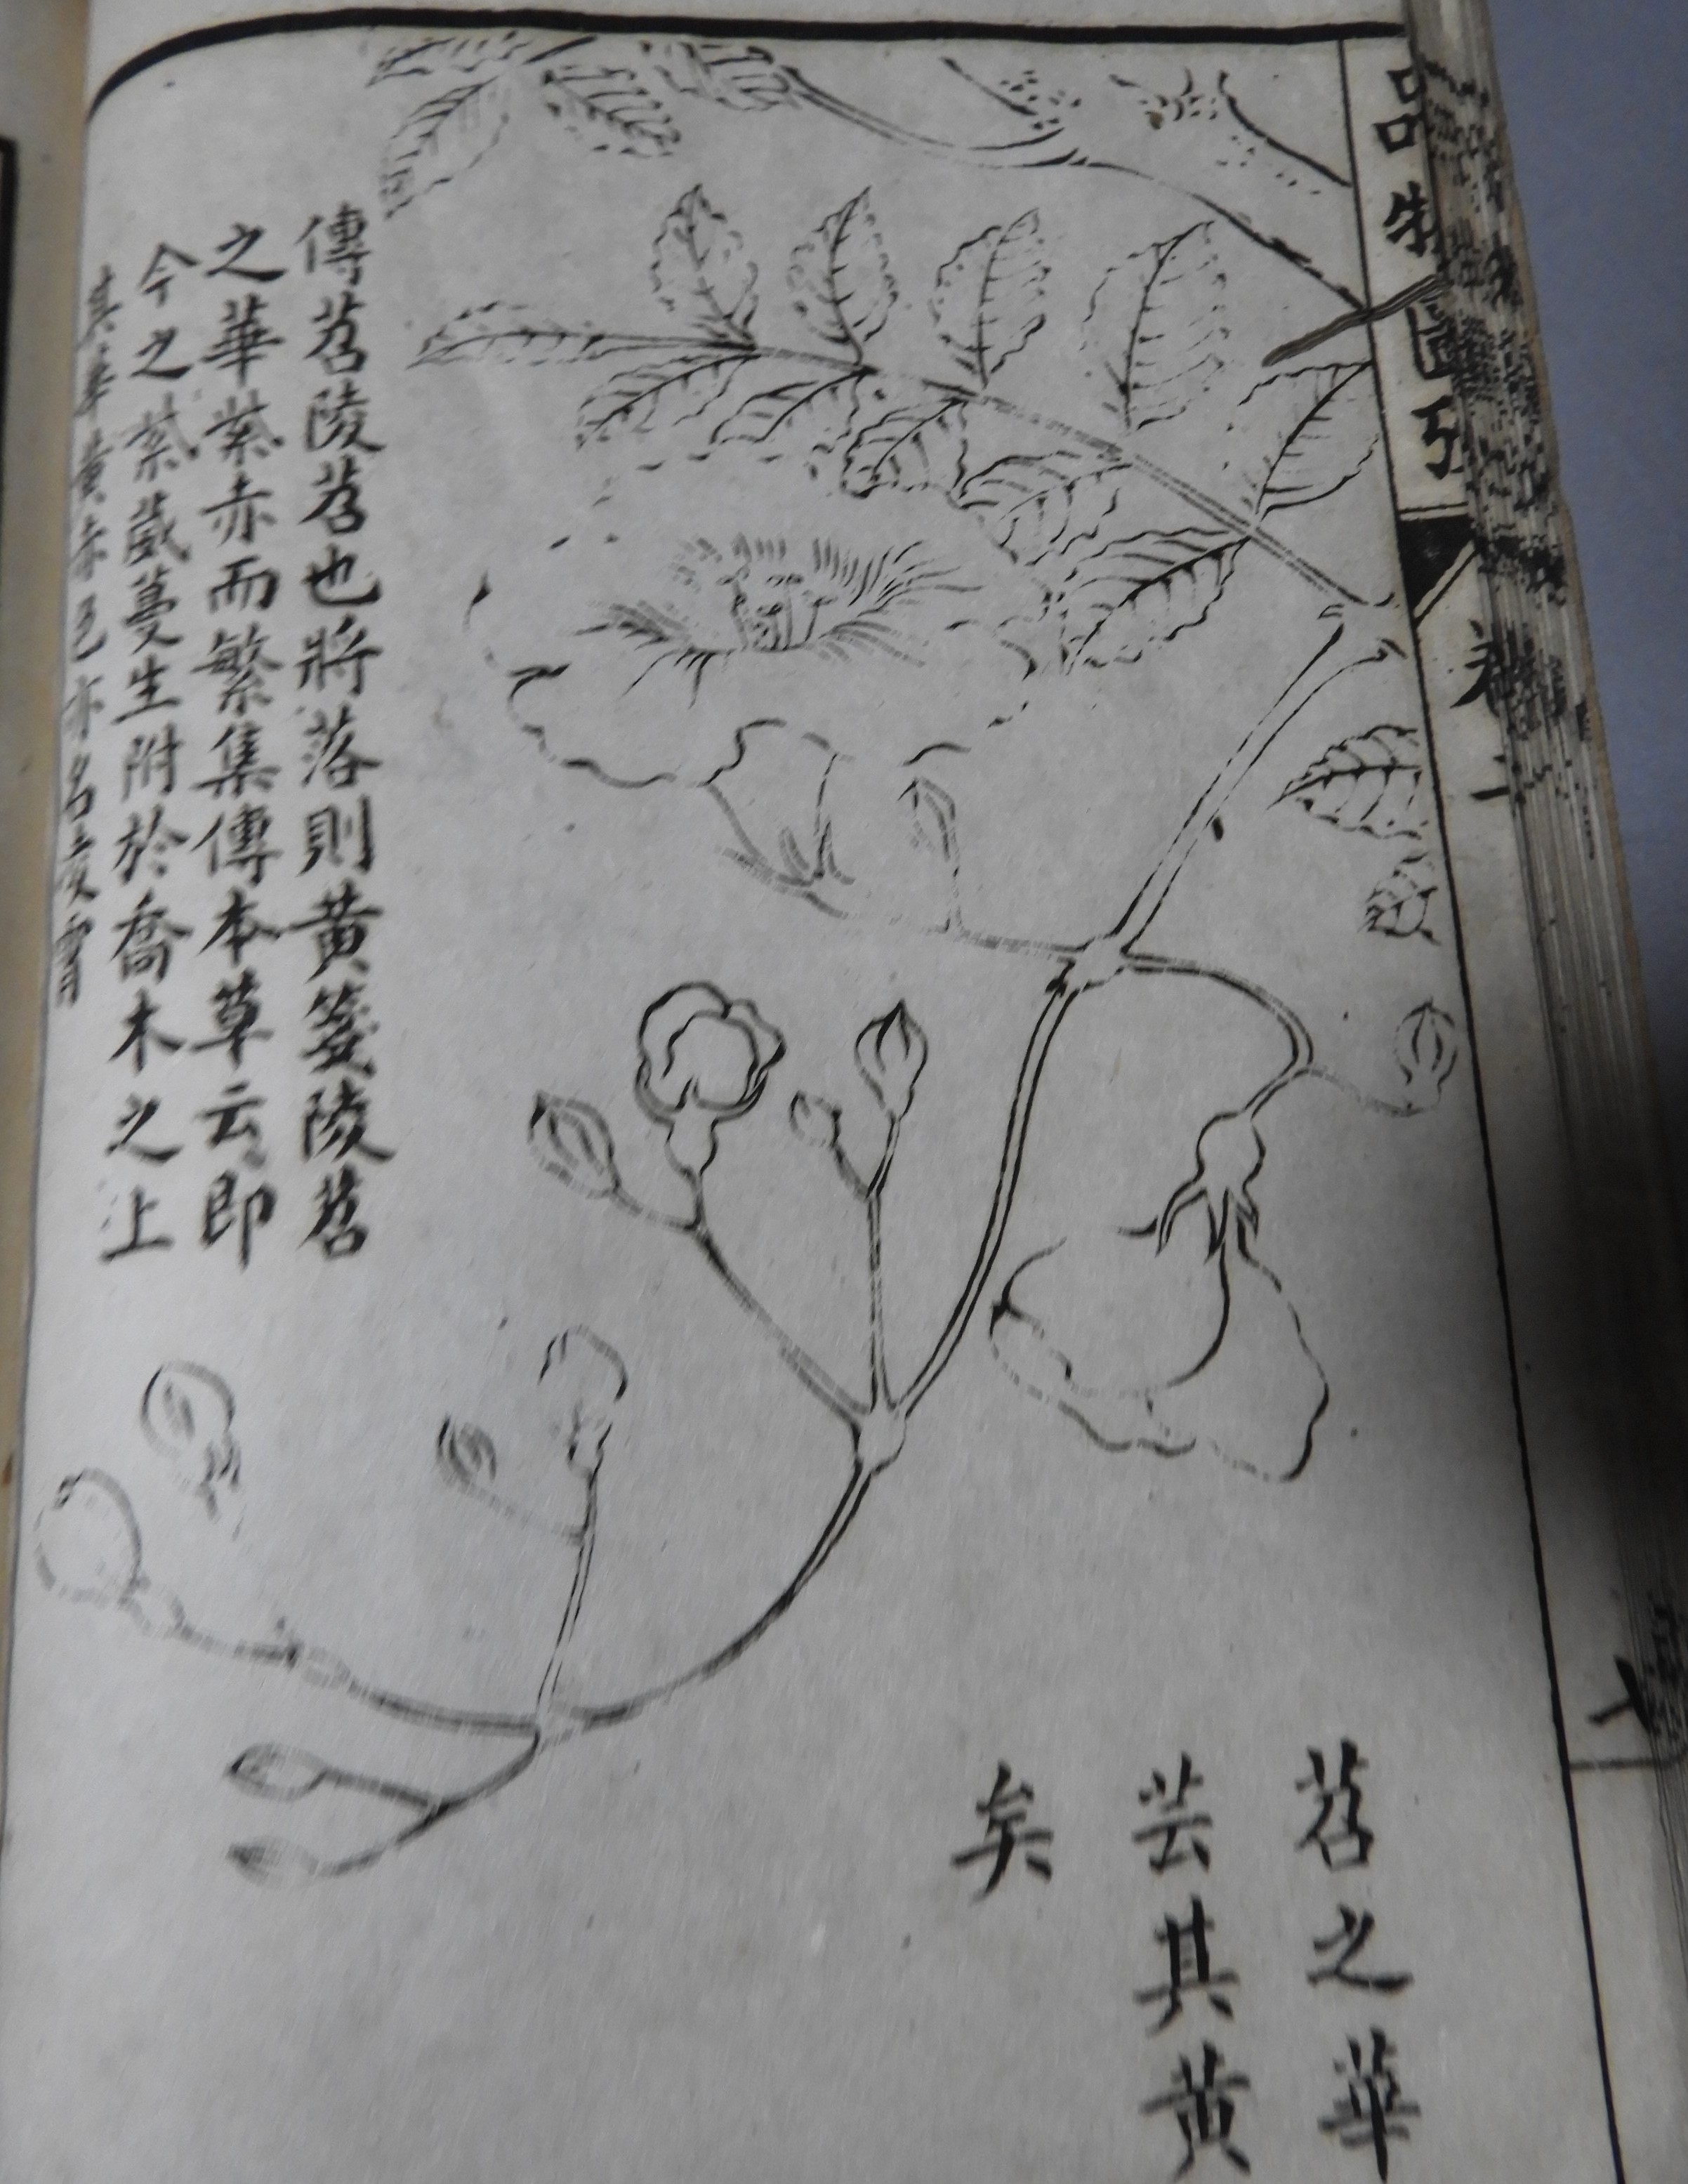 苕之華
芸其黄
矣
傳苕陵苕也將落則黄箋陵苕
之華紫赤而繁集傳本草云即
今之紫葳蔓生附於喬木之上
其華黄赤色亦名凌霄
品物圖攷
卷二
十